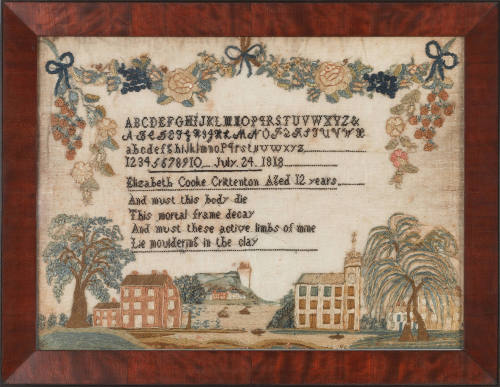 ABCDEFGHIJKLMNOPQRSTUVWXYZ&
abcdefghijklmnopqrstuvwxyz
12345678910 July. 24. 1818
Elizabeth Cooke Crittenton Aged 12 years
And must this body die
This mortal frame decay
And must these active limbs of mine
Lie mouldering in the clay